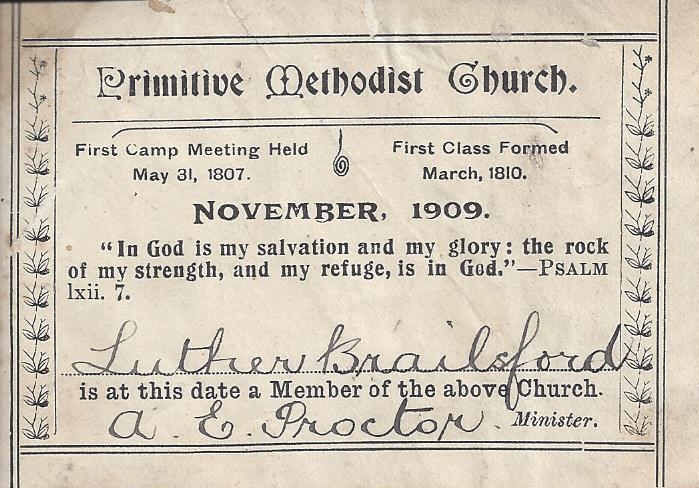 Primitive Methodist Church.
First Camp Meeting Held
May 31, 1807.
First Class Formed
March, 1810.
NOVEMBER, 1909.
"In God is my salvation and my glory: the rock
of my strength, and my refuge, is in God."—PSALM
lxii. 7.
Luther Brailsford
is at this date a Member of the above Church.
A. E. Proctor. Minister.